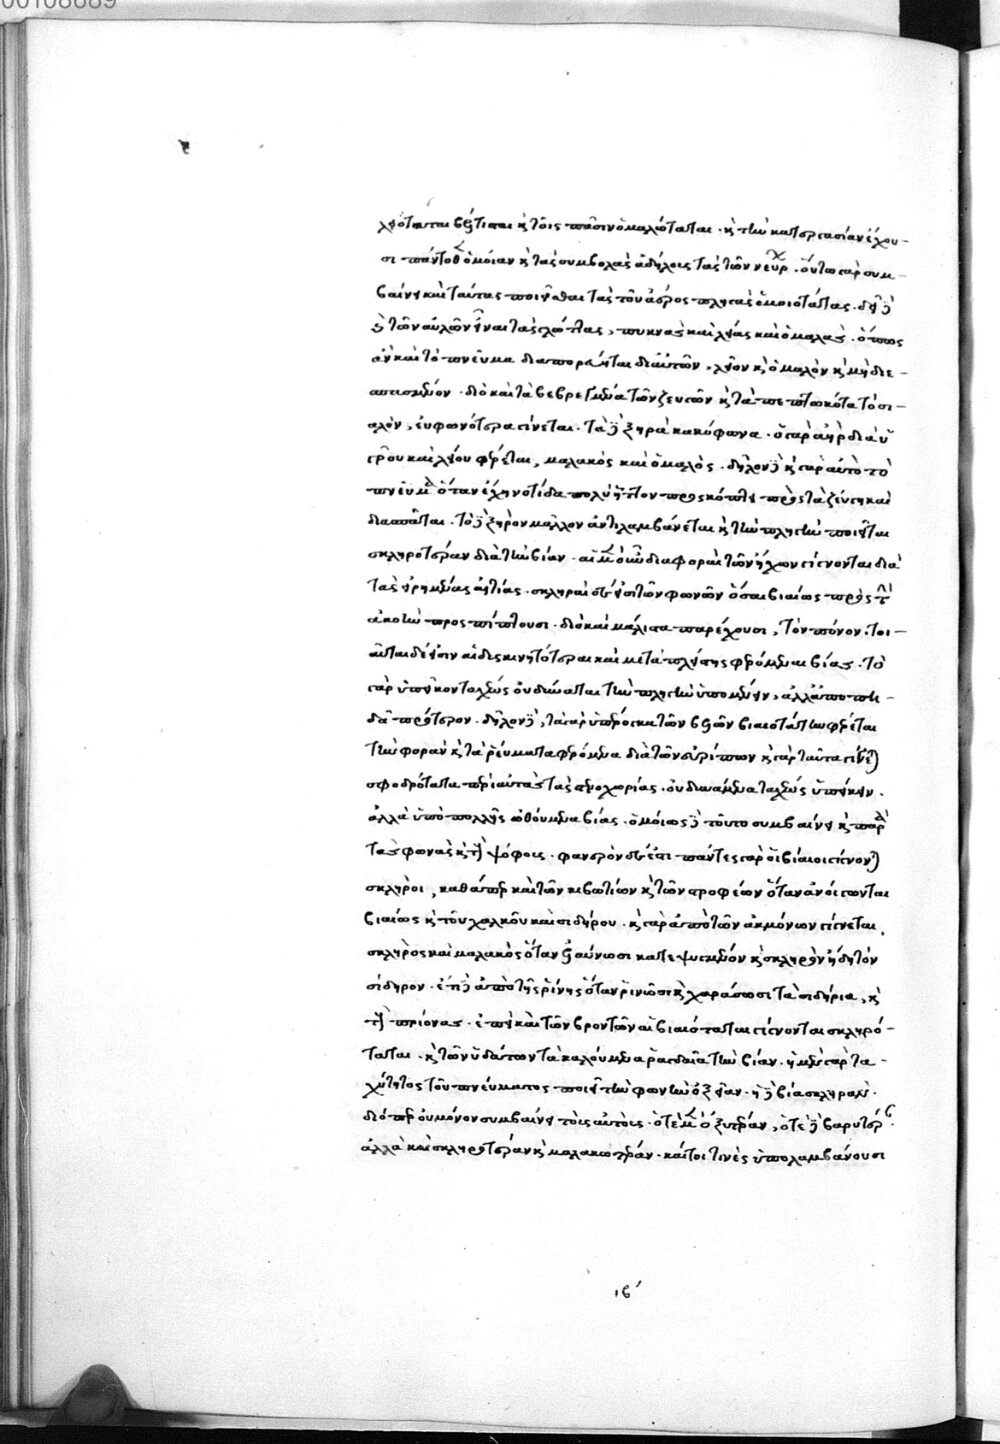 λειόταται βέλτισται κ τοῖς πᾶσιν ὁμαλώταται · κ τὴν κατεργασίαν ἔχου-
σι πάντοθεν ὁμοίαν κ τὰς συμβολὰς ἀδήλοις τὰς τῶν νεύρων · οὕτω γὰρ συμ-
βαίνει καὶ ταύτας ποιεῖσθαι τὰς τοῦ ἀέρος πληγὰς ὁμοιοτάτας · δεῖ δὲ
κ τῶν αὐλῶν εἶναι τὰς γλώττας, πυκνὰς καὶ λείας καὶ ὁμαλὰς · ὅπως
ἂν καὶ τὸ πνεῦμα διαπορεύηται δι' αὐτῶν, λεῖον κ ὁμαλὸν κ μὴ διε-
σπασμένον · διὸ καὶ τὰ βεβρεγμένα τῶν ζευγῶν κ τὰ πεπτωκότα τὸ σί-
αλον, εὐφωνότερα γίνεται · τὰ δὲ ξηρὰ κακόφωνα · ὁ γὰρ ἀὴρ δια ὑ
γροῦ καὶ λείου φέρεται, μαλακὸς καὶ ὁμαλός · δῆλον δὲ κ γὰρ αὐτὸ τὸ
πνεῦμα ὅταν ἔχῃ νοτίδα πολὺ ἧττον προσκόπτει πρὸς τὰ ζεύγη καὶ
διασπᾶται · τὸ δὲ ξηρὸν μᾶλλον ἀντιλαμβάνεται κ τὴν πληγὴν ποιεῖται
σκληροτέραν διὰ τὴν βίαν · αἱ μὲν οὖν διαφοραὶ τῶν ἤχων γίγνονται διὰ
τὰς εἰρημένας αἰτίας · σκληραὶ δ' εἰσὶ τῶν φωνῶν ὅσαι βιαίως πρὸς τὴν
ἀκοὴν προσπίπτουσι · διὸ καὶ μάλιστα παρέχουσι, τὸν πόνον · τοι-
αῦται δέ εἰσιν αἱ δυσκινητότεραι καὶ μετὰ πλείστης φερόμεναι βίας · τὸ
γὰρ ὑπεῖκον ταχέως οὐ δύναται τὴν πληγὴν ὑπομένειν, ἀλλ' ἀποπη-
δᾶν πρότερον · δῆλον δὲ, τὰ γὰρ ὑπέρογκα τῶν βελῶν βιαιοτάτην φέρεται
τὴν φορὰν κ τὰ ῥεύματα φερόμενα διὰ τῶν εὐρίπων κ γὰρ ταῦτα γίνεται
σφοδρότατα περὶ αὐτὰς τὰς στενοχωρίας · οὐ δυνάμενα ταχέως ὑπείκειν ·
ἀλλὰ ὑπὸ πολλῆς ὠθούμενα βίας · ὁμοίως δὲ τοῦτο συμβαίνει κ περὶ
τὰς φωνὰς κ τοὺς ψόφους · φανερὸν δ' ἐστι πάντες γὰρ οἱ βίαιοι γίνονται
σκληροὶ, καθάπερ καὶ τῶν κιβωτίων κ τῶν στροφέων ὅταν ἀνοίγωνται
βιαίως κ τοῦ χαλκοῦ καὶ σιδήρου · κ γὰρ ἀπὸ τῶν ἀκμόνων γίγνεται
σκληρὸς καὶ μαλακὸς ὅταν ἐλαύνωσι κατεψυγμένον κ σκληρὸν ἤδη τὸν
σίδηρον · ἔτι δὲ ἀπὸ τῆς ῥίνης ὅταν ῥινῶσι κ χαράσσωσι τὰ σιδήρια, κ
τοὺς πρίονας · ἐπεὶ καὶ τῶν βροντῶν αἱ βιαιόταται γίγνονται σκληρό-
ταται · κ τῶν ὑδάτων τὰ καλούμενα ῥαγδαῖα τὴν βίαν · ἡ μὲν γὰρ τα-
χύτητος τοῦ πνεύματος ποιεῖ τὴν φωνὴν ὀξεῖαν · ἡ δὲ βία σκληράν ·
διόπερ οὐ μόνον συμβαίνει τοὺς αὐτοὺς · ὁτὲ μὲν ὀξυτέραν, ὁτὲ δὲ βαρυτέρ
ἀλλὰ καὶ σκληροτέραν κ μαλακωτέραν · καίτοι τινὲς ὑπολαμβάνουσι
ις´